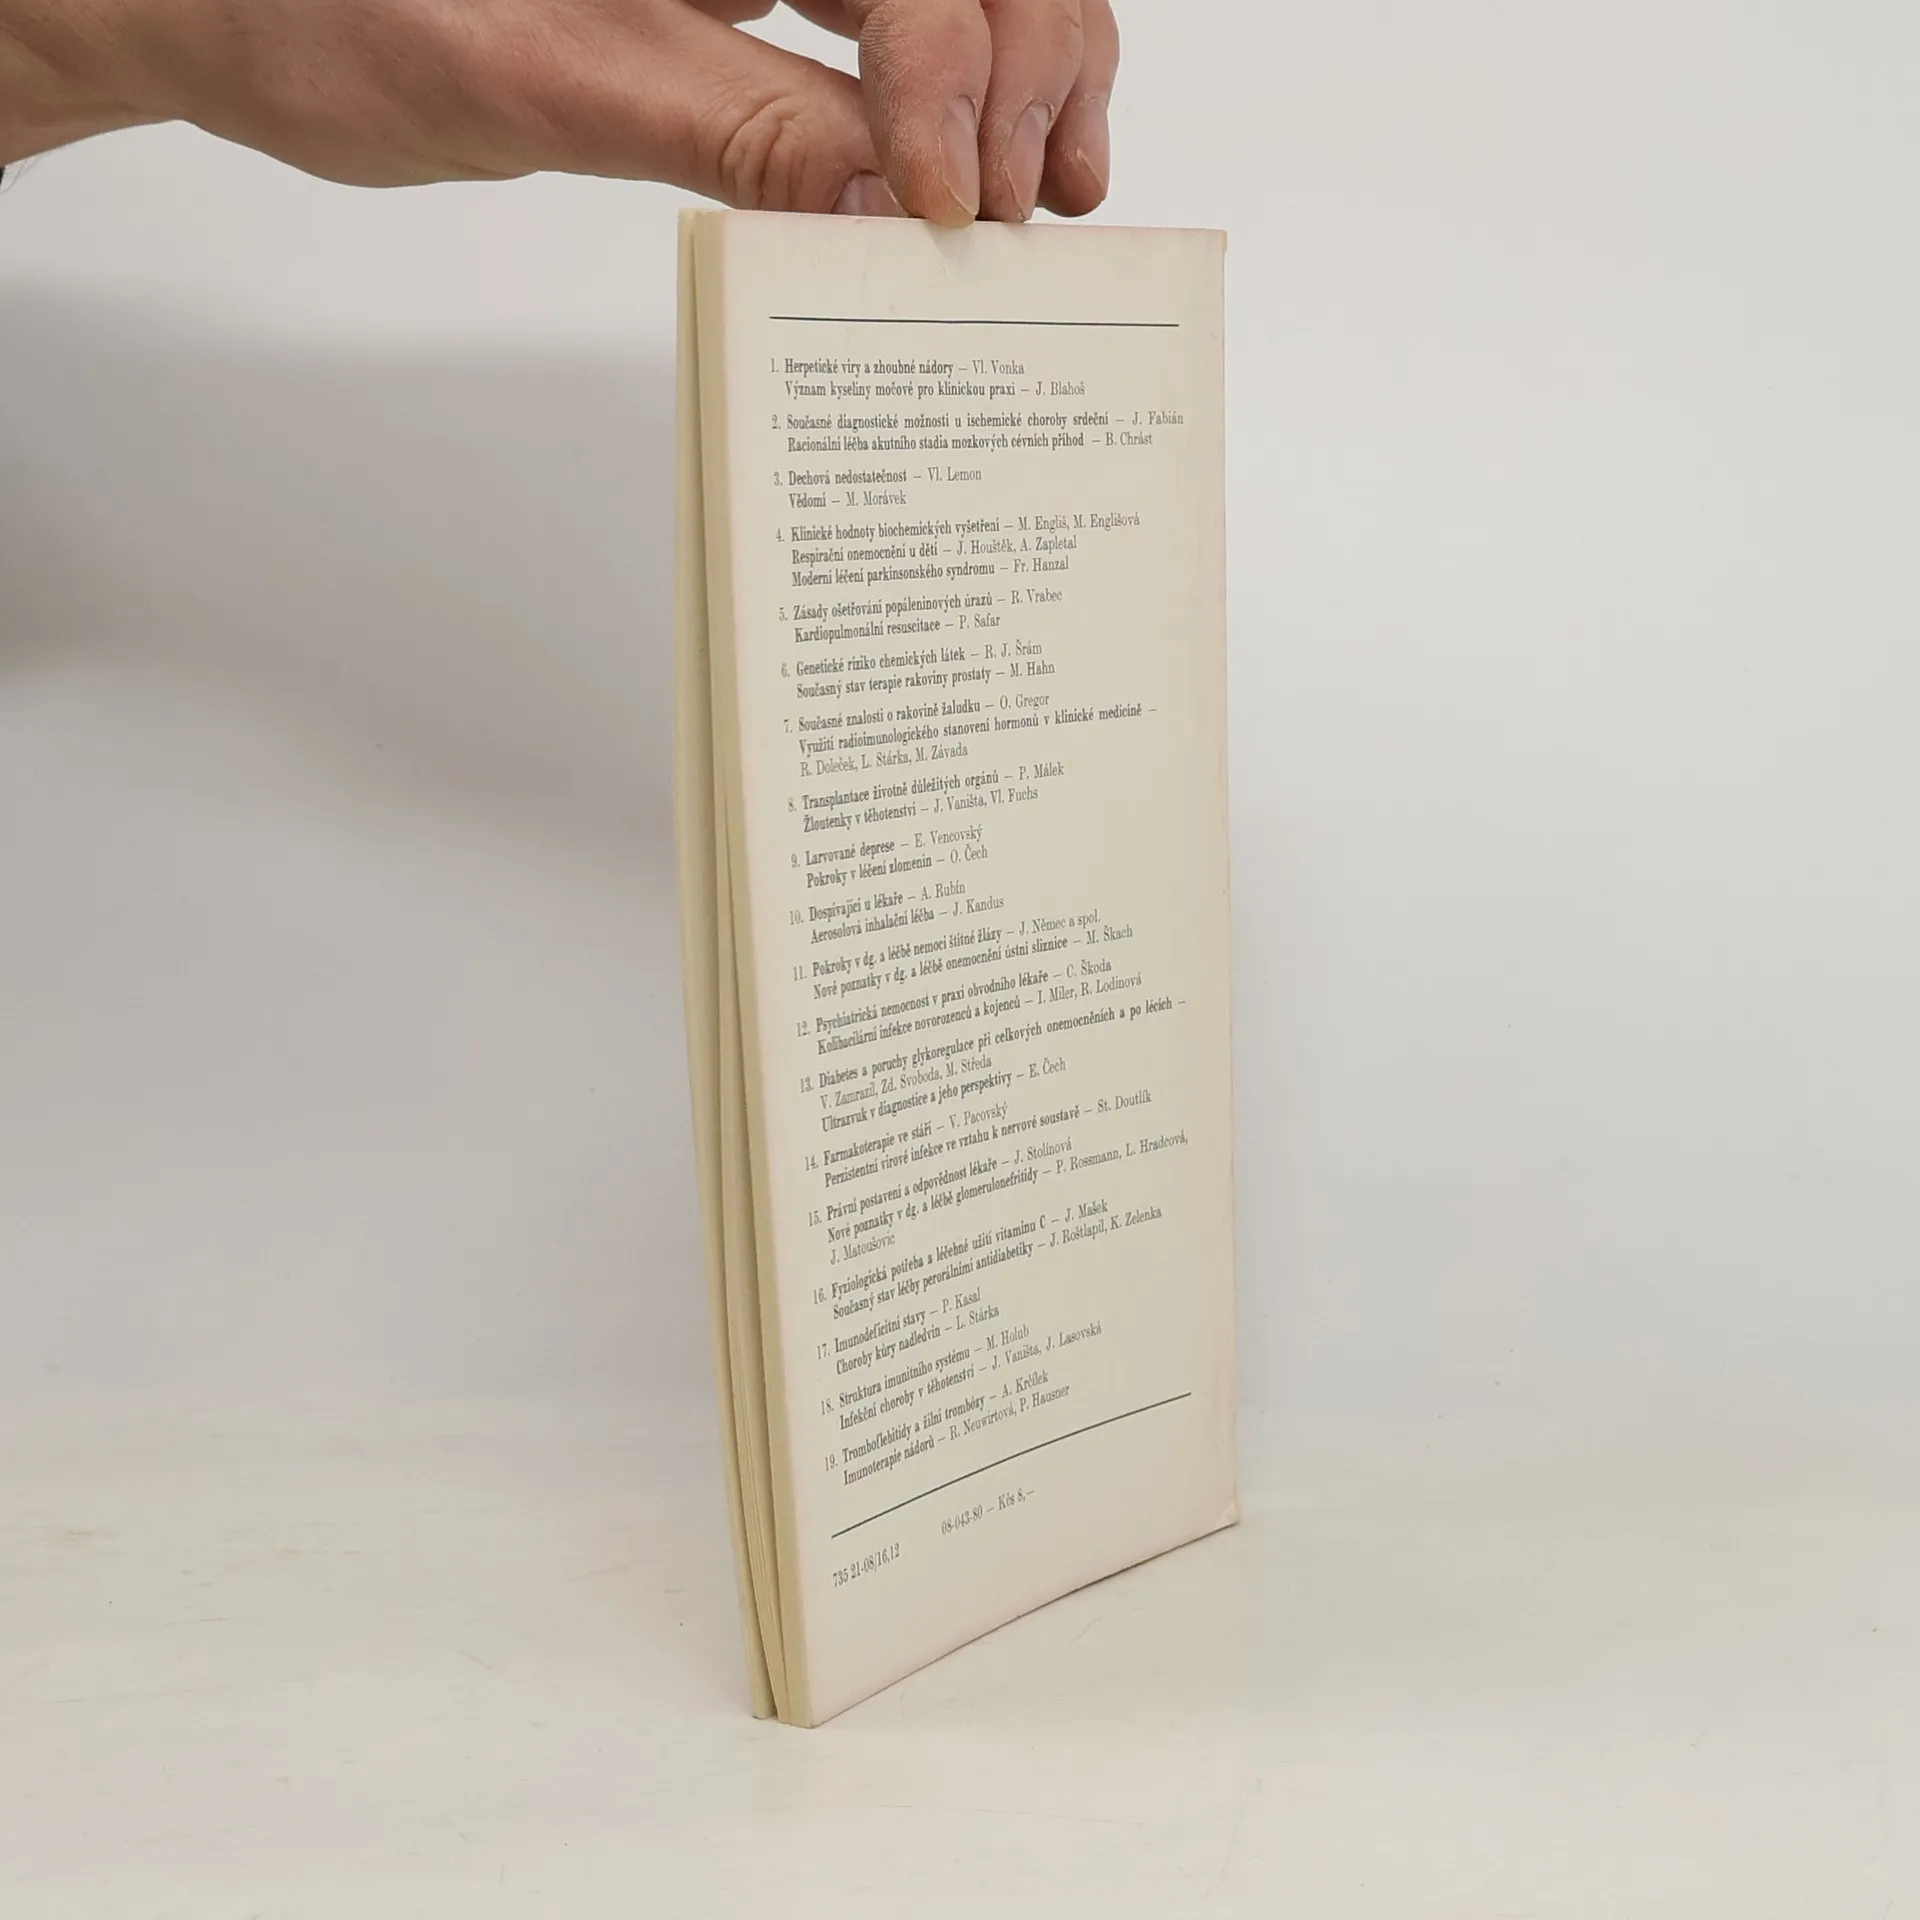 1. Herpetické viry a zhoubné nádory – Vl. Vonka
Význam kyseliny močové pro klinickou praxi – J. Blahoš
2. Současné diagnostické možnosti u ischemické choroby srdeční – J. Fabián
Racionální léčba akutního stadia mozkových cévních příhod – B. Chrást
3. Dechová nedostatečnost – Vl. Lemon
Vědomí – M. Morávek
4. Klinické hodnoty biochemických vyšetření – M. Engliš, M. Englišová
Respirační onemocnění u dětí – J. Houštěk, A. Zapletal
Moderní léčení parkinsonského syndromu – Fr. Hanzal
5. Zásady ošetřování popáleninových úrazů – R. Vrabec
Kardiopulmonální resuscitace – P. Safar
6. Genetické riziko chemických látek – R. J. Šrám
Současný stav terapie rakoviny prostaty – M. Hahn
7. Současné znalosti o rakovině žaludku – O. Gregor
Využití radioimunologického stanovení hormonů v klinické medicíně –
R. Doleček, L. Stárka, M. Závada
8. Transplantace životně důležitých orgánů – P. Málek
Žloutenky v těhotenství – J. Vaništa, Vl. Fuchs
9. Larvované deprese – E. Vencovský
Pokroky v léčení zlomenin – O. Čech
10. Dospívající u lékaře – A. Rubín
Aerosolová inhalační léčba – J. Kandus
11. Pokroky v dg. a léčbě nemocí štítné žlázy – J. Němec a spol.
Nové poznatky v dg. a léčbě onemocnění ústní sliznice – M. Škach
12. Psychiatrická nemocnost v praxi obvodního lékaře – C. Škoda
Kolibacilární infekce novorozenců a kojenců – I. Miler, R. Lodinová
13. Diabetes a poruchy glykoregulace při celkových onemocněních a po lécích –
V. Zamrazil, Zd. Svoboda, M. Středa
Ultrazvuk v diagnostice a jeho perspektivy – E. Čech
14. Farmakoterapie ve stáří – V. Pacovský
Perzistentní virové infekce ve vztahu k nervové soustavě – St. Doutlík
15. Právní postavení a odpovědnost lékaře – J. Stolínová
Nové poznatky v dg. a léčbě glomerulonefritidy – P. Rossmann, L. Hradcová,
J. Matoušovic
16. Fyziologická potřeba a léčebné užití vitaminu C – J. Mašek
Současný stav léčby perorálními antidiabetiky – J. Roštlapil, K. Zelenka
17. Imunodeficitní stavy – P. Kasal
Choroby kůry nadledvin – L. Stárka
18. Struktura imunitního systému – M. Holub
Infekční choroby v těhotenství – J. Vaništa, J. Lasovská
19. Tromboflebitidy a žilní trombózy – A. Krčílek
Imunoterapie nádorů – R. Neuwirtová, P. Hausner
08-043-80 – Kčs 8,–
735 21-08/16,12